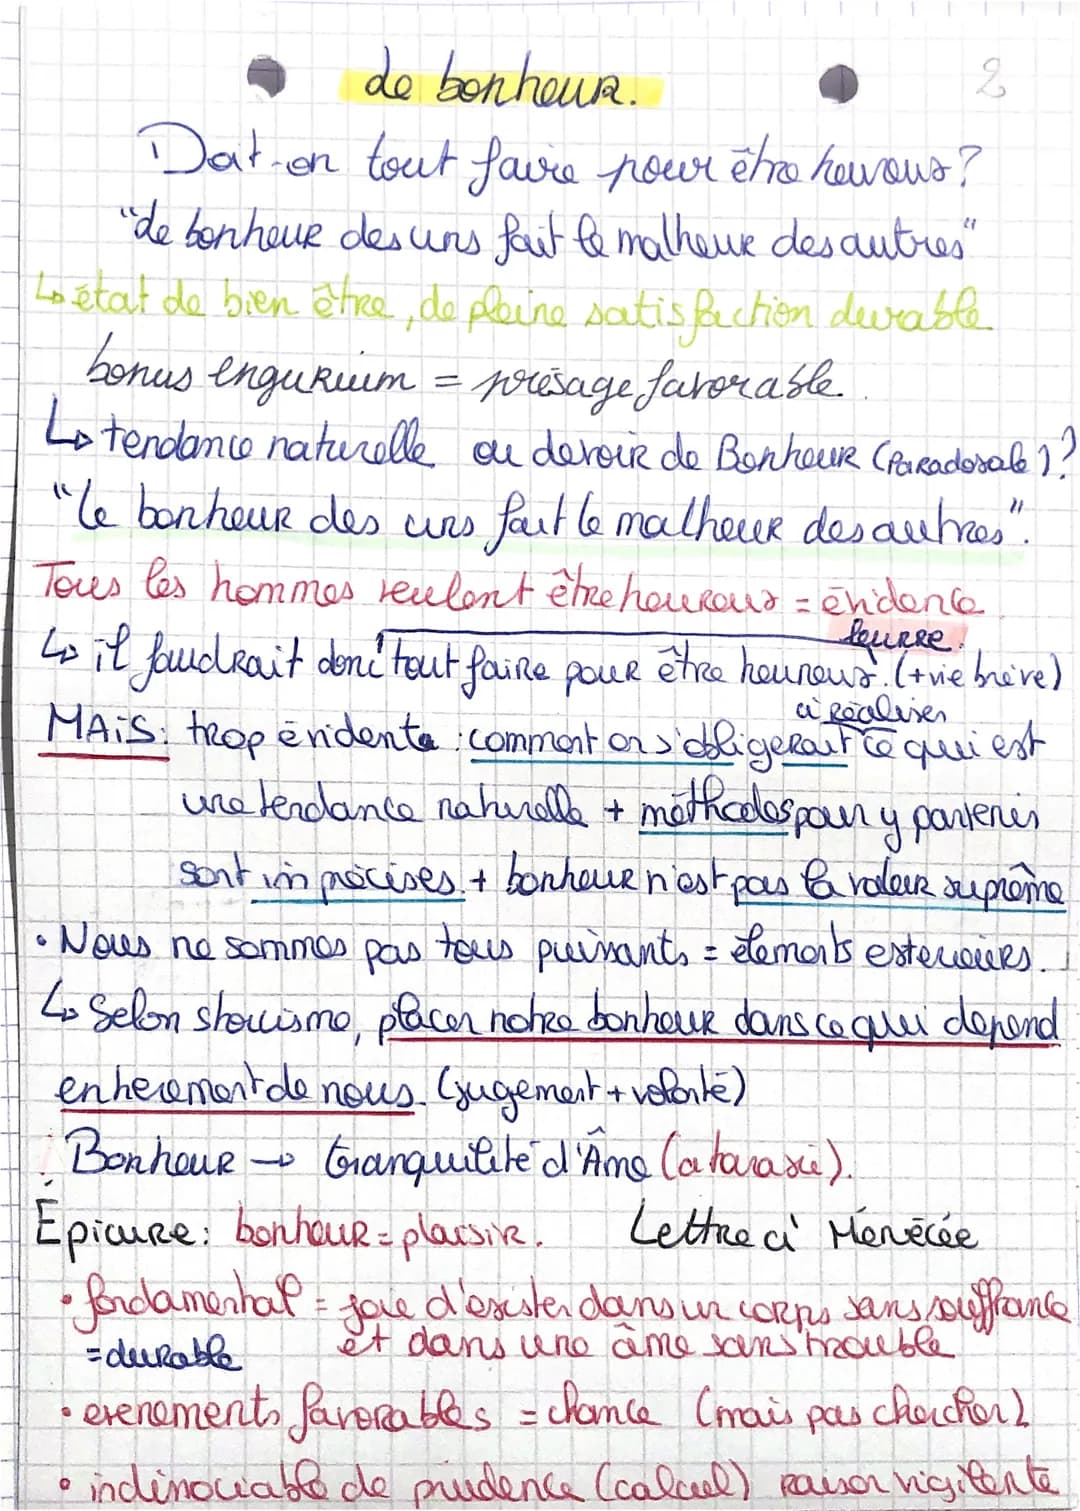 Le bonheur. 2
Doit-on tout faire pour être heureux ?
"Le bonheur des uns fait le malheur des autres"
↳ état de bien être, de pleine satisfaction durable
bonus engurium = présage favorable.
↳ tendance naturelle ou devoir de Bonheur (Paradoxale) ?
"Le bonheur des uns fait le malheur des autres".
Tous les hommes veulent être heureux = évidence.
leurre.
↳ il faudrait donc tout faire pour être heureux. (+ vie brève)
à réaliser
MAiS: trop évidente : comment on s'obligerait ce qui est
une tendance naturelle + méthodes pour y parvenir
sont imprécises. + bonheur n'est pas la valeur suprême
• Nous ne sommes pas tous puissants = élements exterieurs.
↳ Selon stoicisme, placer notre bonheur dans ce qui depend
entierement de nous. (jugement + volonté)
! Bonheur → tranquilité d'Âme (ataraxie).
Épicure: bonheur = plaisir. Lettre à Ménécée
• fondamental = joie d'exister dans un corps sans souffrance
= durable et dans une âme sans trouble
• evenements favorables = chance (mais pas chercher)
• indissociable de prudence (calcul) raison vigilante